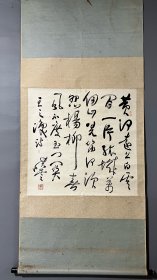 黄河遠上白雲
間一片孤城萬
仞山羌笛何須
怨楊柳春
風不度玉門關
王之渙詩